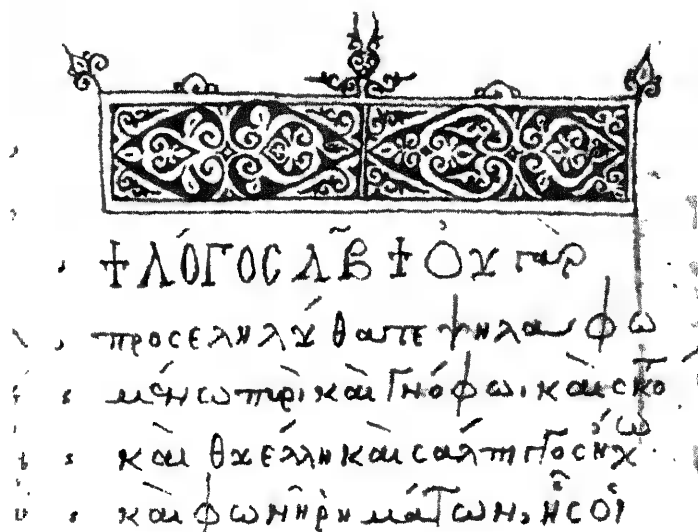 + ΛΌΓΟC Λ̅Β̅ + Ὀυ γὰρ
προσεληλύθατε ψηλαφω
μένω πυρὶ καὶ γνόφω, καὶ σκότ
καὶ θυέλλη καὶ σάλπιγγος ἤχω
καὶ φωνῆ ῥημάτων, ἧς οἱ